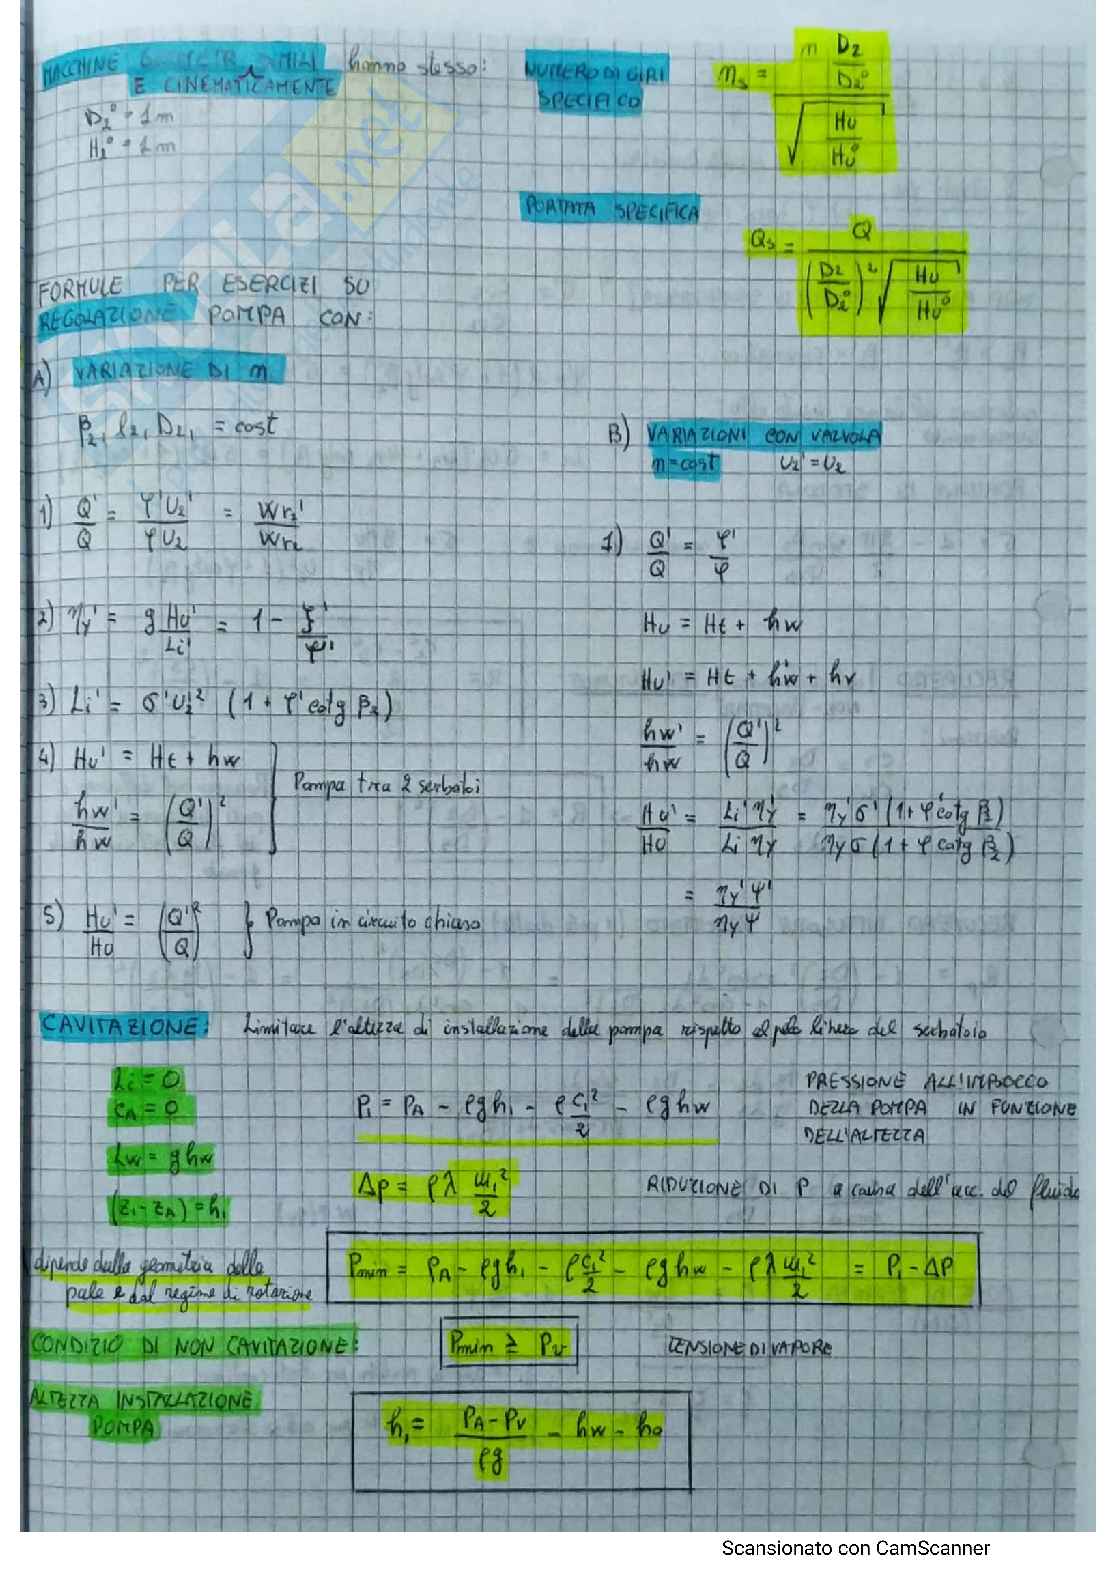 MACCHINE GEOMETR. SIMILI hanno stesso:
E CINEMATICAMENTE
D₂° = 1m
H₂° = 1m
NUMERO DI GIRI
SPECIFICO
n_s = (n D₂/D₂°) / √(Hu/Hu°)
PORTATA SPECIFICA
Q_s = Q / ((D₂/D₂°)² √(Hu/Hu°))
FORMULE PER ESERCIZI SU
REGOLAZIONE POMPA CON:
A) VARIAZIONE DI n
β₂, l₂, D₂, = cost
1) Q'/Q = φ'U₂'/φU₂ = Wr₂'/Wr₂
2) ηy' = g Hu'/Li' = 1 - ξ'/φ'
3) Li' = σ'U₂'² (1 + φ' cotg β₂)
4) Hu' = Ht + hw
hw'/hw = (Q'/Q)²
Pompa tra 2 serbatoi
5) Hu'/Hu = (Q'/Q)² } Pompa in circuito chiuso
B) VARIAZIONI CON VALVOLA
n=cost U₂' = U₂
1) Q'/Q = φ'/φ
Hu = Ht + hw
Hu' = Ht + hw' + hv
hw'/hw = (Q'/Q)²
Hu'/Hu = Li'ηy'/Li ηy = ηy'σ'(1+φ'cotg β₂)/ηyσ(1+φ cotg β₂)
= ηy'ψ'/ηyψ
CAVITAZIONE: Limitare l'altezza di installazione della pompa rispetto al pelo libero del serbatoio
Li = 0
c_A = 0
Lw = ghw
(z₁-z_A) = h₁
P₁ = P_A - ρgh₁ - ρ c₁²/2 - ρghw
PRESSIONE ALL'IMBOCCO
DELLA POMPA IN FUNZIONE
DELL'ALTEZZA
Δp = ρλ w₁²/2
RIDUZIONE DI P a causa dell'acc. del fluido
dipende dalla geometria delle
pale e dal regime di rotazione
Pmin = P_A - ρgh₁ - ρ c₁²/2 - ρghw - ρλ w₁²/2 = P₁ - ΔP
CONDIZIO DI NON CAVITAZIONE:
Pmin ≥ Pv
TENSIONE DI VAPORE
ALTEZZA INSTALLAZIONE
POMPA
h₁ = (P_A - P_V)/ρg - hw - ho
Scansionato con CamScanner